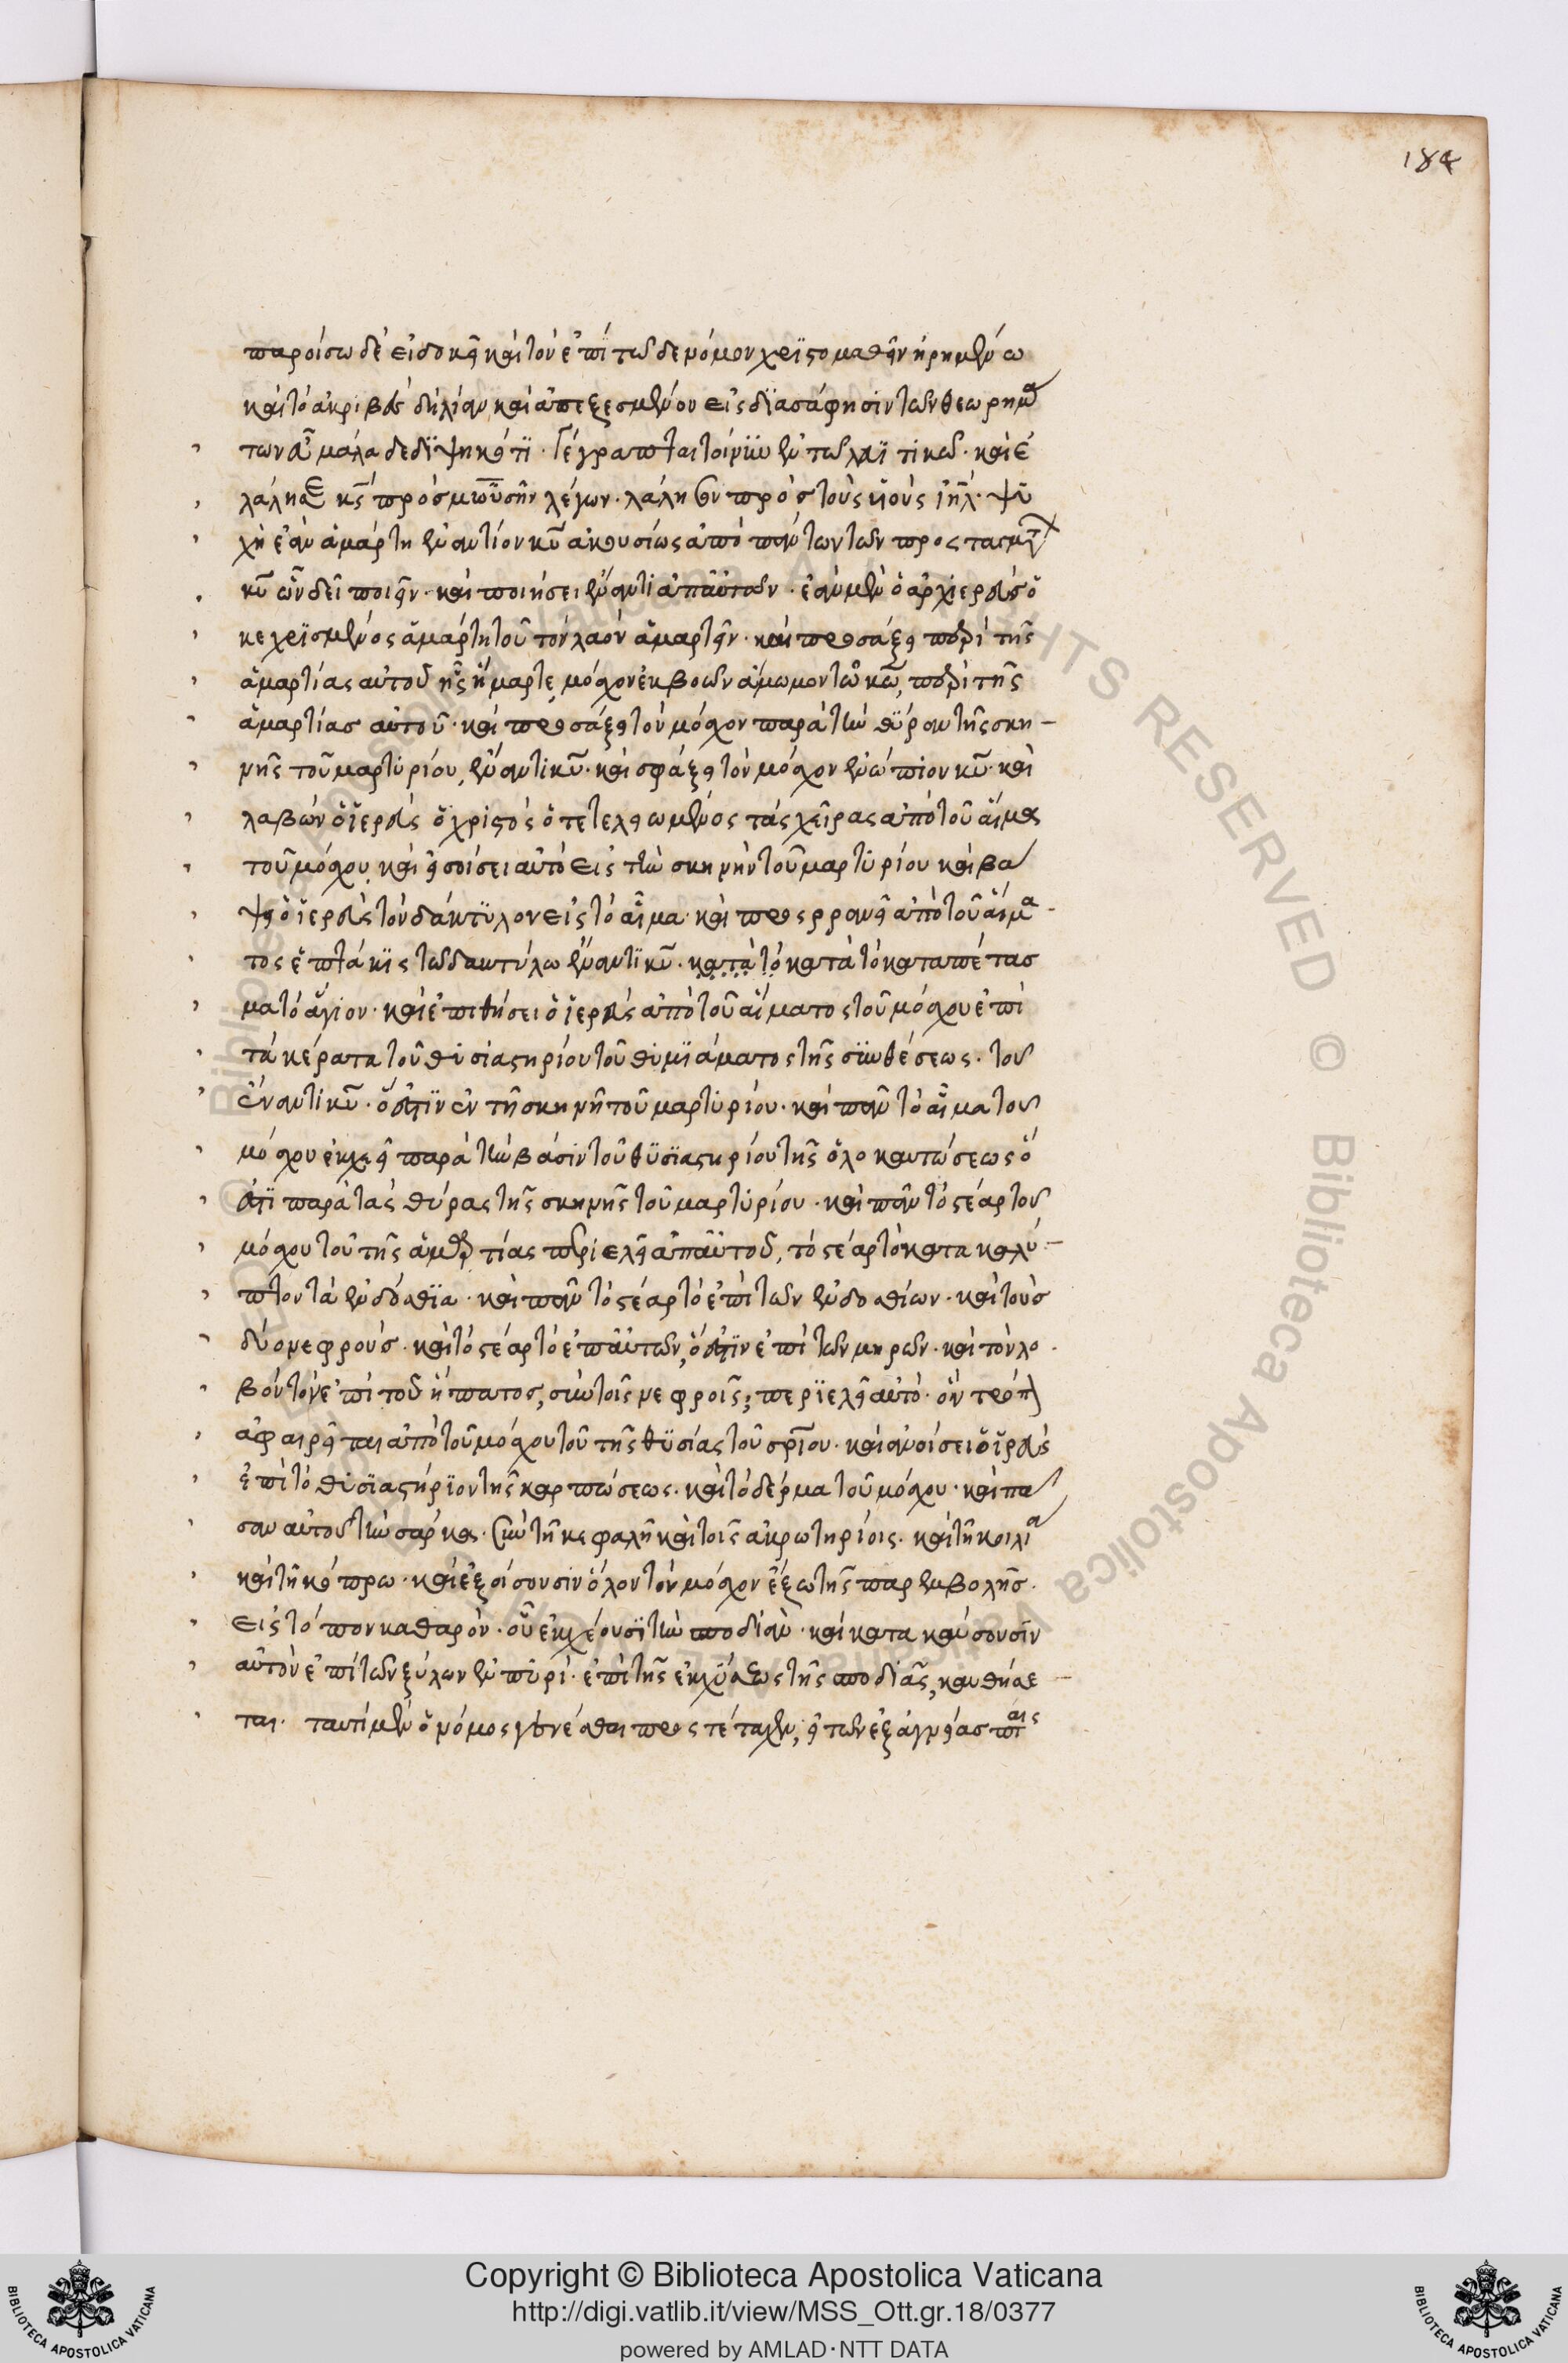 184
παροίσω δὲ εἰ δοκεῖ καὶ τὸν ἐπὶ τῶδε νόμον χρηστομαθεῖν ἡρημένω
καὶ τὸ ἀκριβὲς δὴ λίαν καὶ ἀπεξεσμένον εἰς διασάφησιν τῶν θεωρημά
των εὖ μάλα δεδιψηκότι· Γέγραπται τοίνυν ἐν τῶ λευϊτικῶ· καὶ ἐ
λάλησε κς πρὸς μωϋσῆν λέγων· λάλησον πρὸς τοὺς υἱοὺς ιηλ· ψυ
χὴ ἐὰν ἁμάρτη ἐναντίον κυ ἀκουσίως ἀπὸ πάντων τῶν προσταγμάτων
κυ ὧν δεῖ ποιεῖν· καὶ ποιήσει ἔναντι ἀπ' αὐτῶν· ἐὰν μὲν ὁ ἀρχιερεὺς ὁ
κεχρισμένος ἁμάρτη τοῦ τὸν λαὸν ἁμαρτεῖν· καὶ προσάξει περὶ τῆς
ἁμαρτίας αὐτοῦ ἧς ἥμαρτε, μόσχον ἐκ βοῶν ἄμωμον τῶ κω, περὶ τῆς
ἁμαρτίας αὐτοῦ· καὶ προσάξει τὸν μόσχον παρὰ τὴν θύραν τῆς σκη-
νῆς τοῦ μαρτυρίου, ἔναντι κυ· καὶ σφάξει τὸν μόσχον ἐνώπιον κυ· καὶ
λαβὼν ὁ ἱερεὺς ὁ χριστὸς ὁ τετελειωμένος τὰς χεῖρας ἀπὸ τοῦ αἵματος
τοῦ μόσχου, καὶ εἰσοίσει αὐτὸ εἰς τὴν σκηνὴν τοῦ μαρτυρίου καὶ βά
ψει ὁ ἱερεὺς τὸν δάκτυλον εἰς τὸ αἷμα· καὶ προσρρανεῖ ἀπὸ τοῦ αἵμα-
τος ἑπτάκις τῶ δακτύλω ἔναντι κυ· κατὰ τὸ κατὰ τὸ καταπέτασ
μα τὸ ἅγιον· καὶ ἐπιθήσει ὁ ἱερεὺς ἀπὸ τοῦ αἵματος τοῦ μόσχου ἐπὶ
τὰ κέρατα τοῦ θυσιαστηρίου τοῦ θυμιάματος τῆς συνθέσεως· τοῦ
ἔναντι κυ· ὅ ἐστιν ἐν τῆ σκηνῆ τοῦ μαρτυρίου· καὶ πᾶν τὸ αἷμα τοῦ
μόσχου ἐκχεεῖ παρὰ τὴν βάσιν τοῦ θυσιαστηρίου τῆς ὁλοκαυτώσεως ὅ
ἐστι παρὰ τὰς θύρας τῆς σκηνῆς τοῦ μαρτυρίου· καὶ πᾶν τὸ στέαρ τοῦ
μόσχου τοῦ τῆς ἁμαρτίας περιελεῖ ἀπ' αὐτοῦ, τὸ στέαρ τὸ κατακαλύ-
πτον τὰ ἐνδόσθια· καὶ πᾶν τὸ στέαρ τὸ ἐπὶ τῶν ἐνδοσθίων· καὶ τοὺς
δύο νεφροὺς· καὶ τὸ στέαρ τὸ ἐπ' αὐτῶν, ὅ ἐστιν ἐπὶ τῶν μηρῶν· καὶ τὸν λο-
βὸν τὸν ἐπὶ τοῦ ἥπατος, σὺν τοῖς νεφροῖς, περιελεῖ αὐτό· ὃν τρόπον
ἀφαιρεῖται ἀπὸ τοῦ μόσχου τοῦ τῆς θυσίας τοῦ σρίου· καὶ ἀνοίσει ὁ ἱερεὺς
ἐπὶ τὸ θυσιαστήριον τῆς καρπώσεως· καὶ τὸ δέρμα τοῦ μόσχου· καὶ πᾶ
σαν αὐτοῦ τὴν σάρκα· σὺν τῆ κεφαλῆ καὶ τοῖς ἀκρωτηρίοις· καὶ τῆ κοιλία
καὶ τῆ κόπρω· καὶ ἐξοίσουσιν ὅλον τὸν μόσχον ἔξω τῆς παρεμβολῆς·
εἰς τόπον καθαρὸν· οὗ ἐκχέουσι τὴν σποδίαν· καὶ κατακαύσουσιν
αὐτὸν ἐπὶ τῶν ξύλων ἐν πυρί· ἐπὶ τῆς ἐκχύσεως τῆς σποδίας, καυθήσε-
ται· ταυτὶ μὲν ὁ νόμος γενέσθαι προστέταχεν, εἰ τῶν ἐξ ἀγνείας